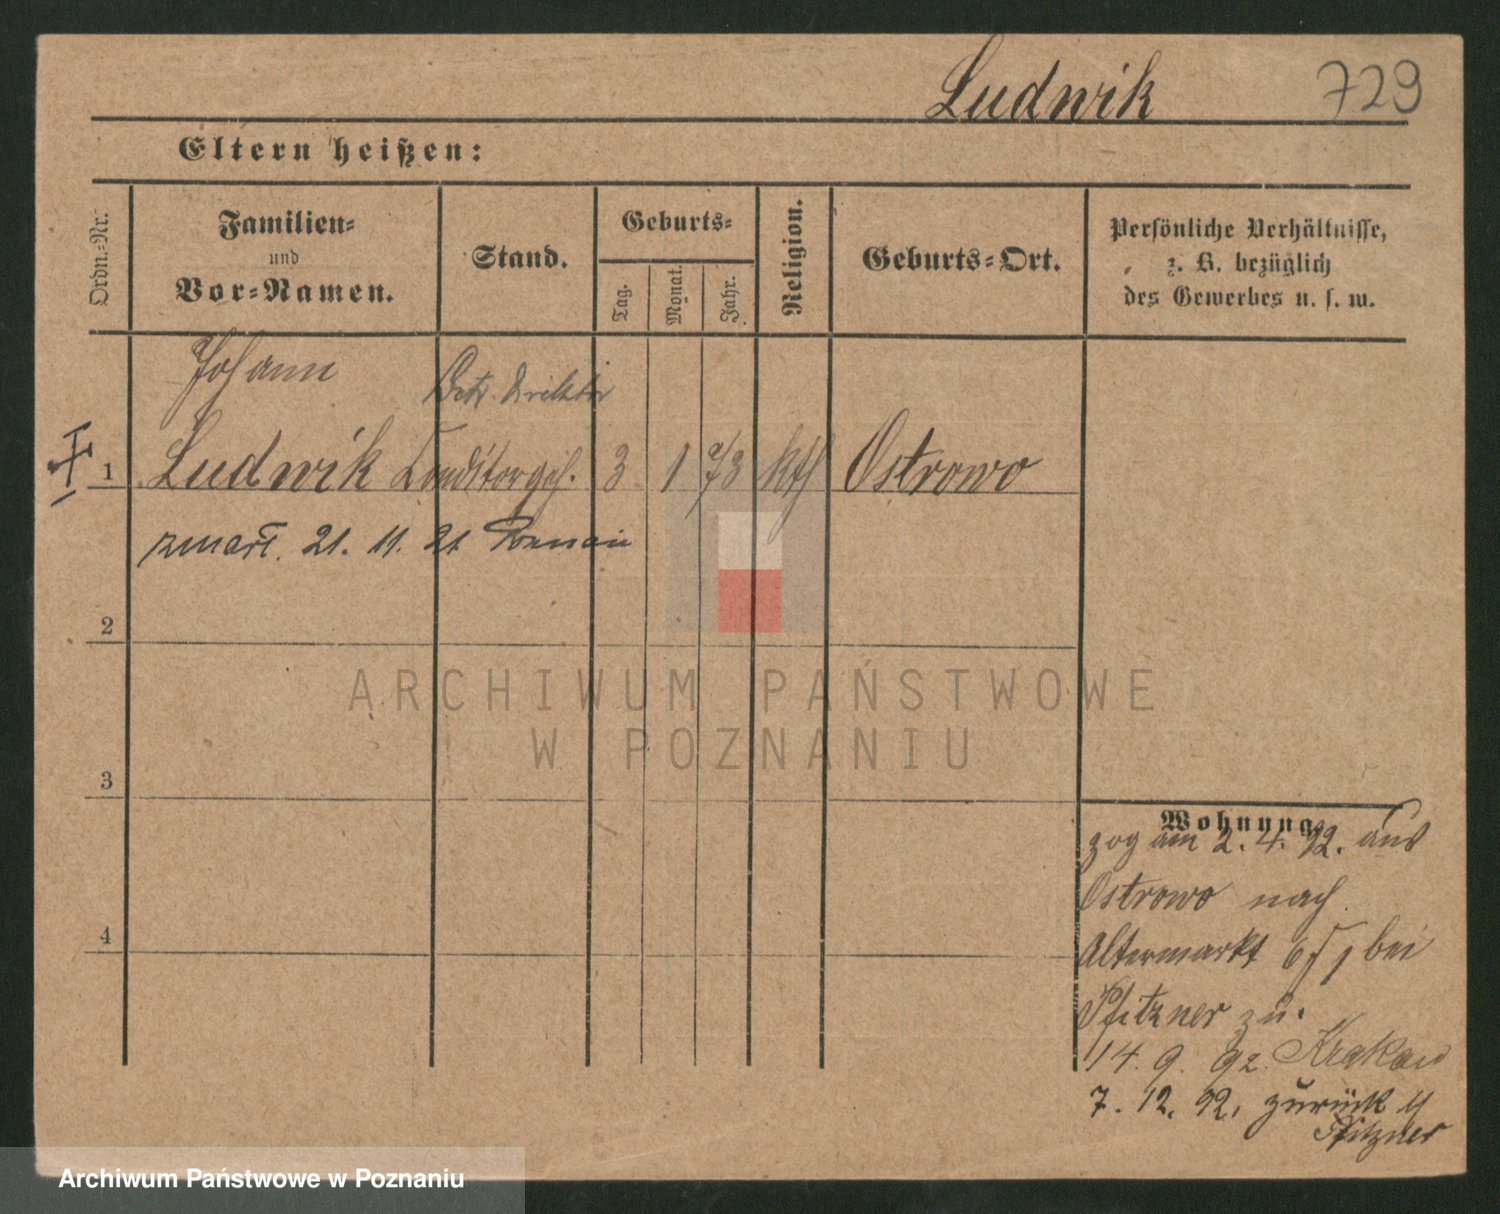 Ludwik 729
Eltern heißen:
Ordn.-Nr.
Familien-
und
Vor-Namen.
Stand.
Geburts-
Tag.
Monat.
Jahr.
Religion.
Geburts-Ort.
Persönliche Verhältnisse,
z. B. bezüglich
des Gewerbes u. s. w.
Johann
Betr. Direktor
1 Ludwik Conditorgeh. 3 1 73 kth Ostrowo
zmarł. 21. 11. 21 Poznań
2
3
4
Wohnung
zog am 2. 4. 92. aus
Ostrowo nach
Altermarkt 6 bei
Pfitzner zu.
14. 9. 92. Krakau
7. 12. 92. zurück
Pfitzner
ARCHIWUM PAŃSTWOWE
W POZNANIU
Archiwum Państwowe w Poznaniu